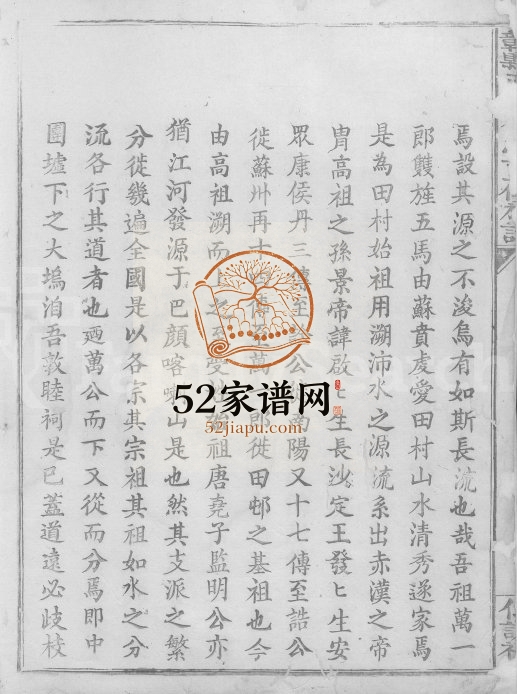 焉設其源之不浚烏有如斯長流也哉吾祖萬一
郎雙旌五馬由蘇賁虔愛田村山水清秀遂家焉
是為田村始祖用溯沛水之源流系出赤漢之帝
胄高祖之孫景帝諱啟匕生長沙定王發匕生安
眾康侯丹三傳至 公 南陽又十七傳至誥公
徙蘇州再十 傳至萬 郎徙田邨之基祖也今
由高祖溯而上 受 祖唐堯子監明公亦
猶江河發源于巴顏喀 山是也然其支派之繁
分徙幾遍全國是以各宗其宗祖其祖如水之分
流各行其道者也廼萬公而下又從而分焉即中
團墟下之大塢洎吾敦睦祠是已蓋道遠必歧校
52家谱网
52jiapu.com